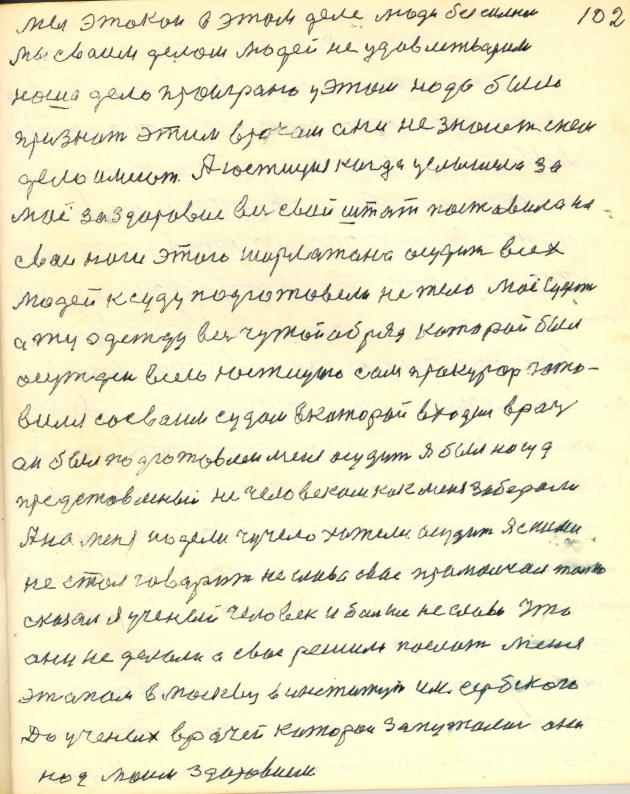 102
мел этакои в этом деле люди бессилни
мы сваим делом людей не удовлетварили
наша дело проиграно у этом нада было
признат этим врочам они не знают скем
дело имиют. А юстиция когда услышила за
моё заздоровие вся свой штат поставила на
сваи ноги этого шорлатана осудит всех
людей к суду подготовели не тело моё судит
а ту одежду вся чужой обряд каторой был
осужден всею юстицию сам прокурор гото-
вился сосваим судом вкаторой входил врач
он был подготовлен меня осудит я был на суд
предстовленый не человеком как меня заберали
А на меня надели чучело хотели осудит я сними
не стал говорит не слова свае промолчал толко
сказал я ученый человек и болше не слова Что
они не делали а свае решили послат меня
этапом в Москву в институт им. сербского
До ученых врачей каторои запутолис они
над моим здоровием